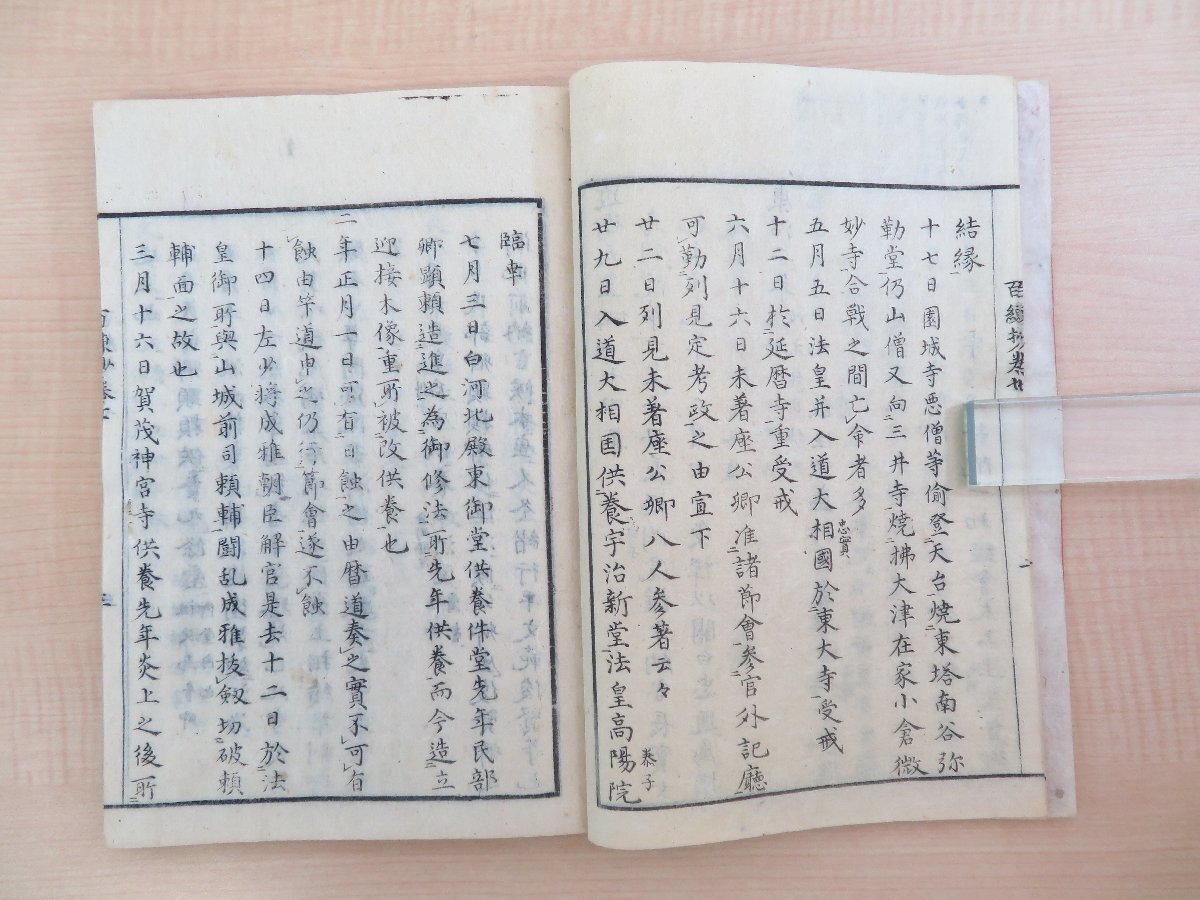 百練抄卷七
結緣
十七日園城寺悪僧等偷登天台燒東塔南谷弥
勒堂仍山僧又向三井寺燒拂大津在家小倉微
妙寺合戰之間亡命者多
五月五日法皇并入道大相國忠實於東大寺受戒
十二日於延暦寺重受戒
六月十六日未著座公卿准諸節會參官外記廳
可勤列見定考政之由宣下
廿二日列見未著座公卿八人參著云々
廿九日入道大相国供養宇治新堂法皇高陽院泰子
臨幸
七月三日白河北殿東御堂供養件堂先年民部
卿顕頼造進之為御修法所先年供養而今造立
迎接木像重所被改供養也
二年正月一日可有日蝕之由暦道奏之實不可有
蝕由筭道申之仍行節會遂不蝕
十四日左少將成雅朝臣解官是去十二日於法
皇御所與山城前司頼輔闘乱成雅抜劔切破頼
輔面之故也
三月十六日賀茂神宮寺供養先年炎上之後所